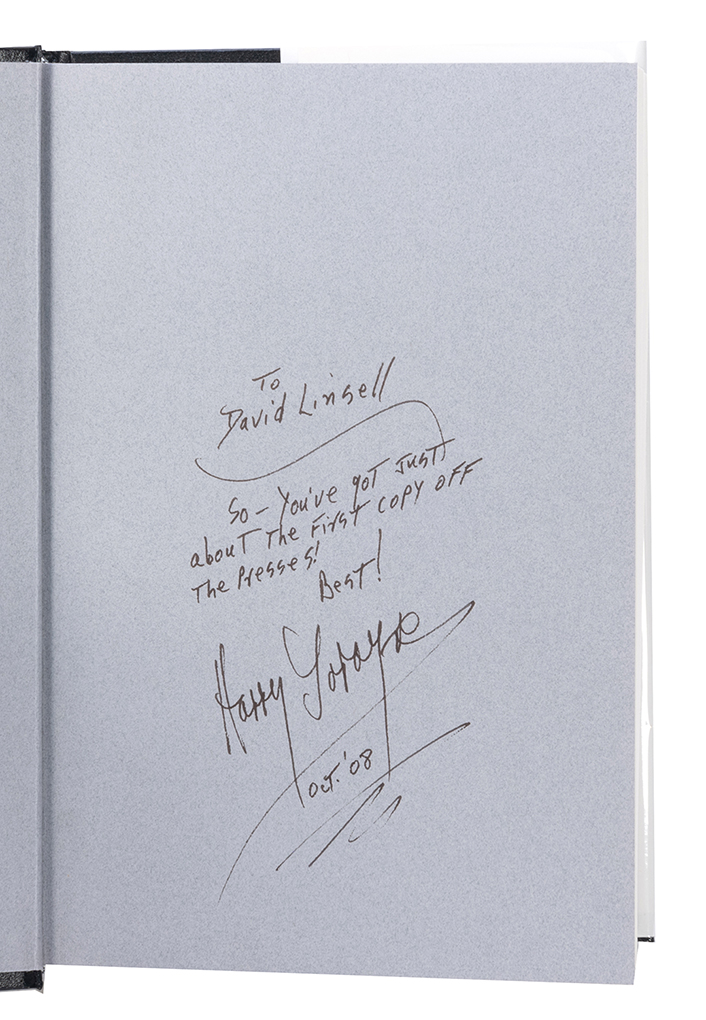 To
David Linsell
So – You've got just
about The First copy off
The Presses!
Best!
Harry Lorayne
Oct. '08